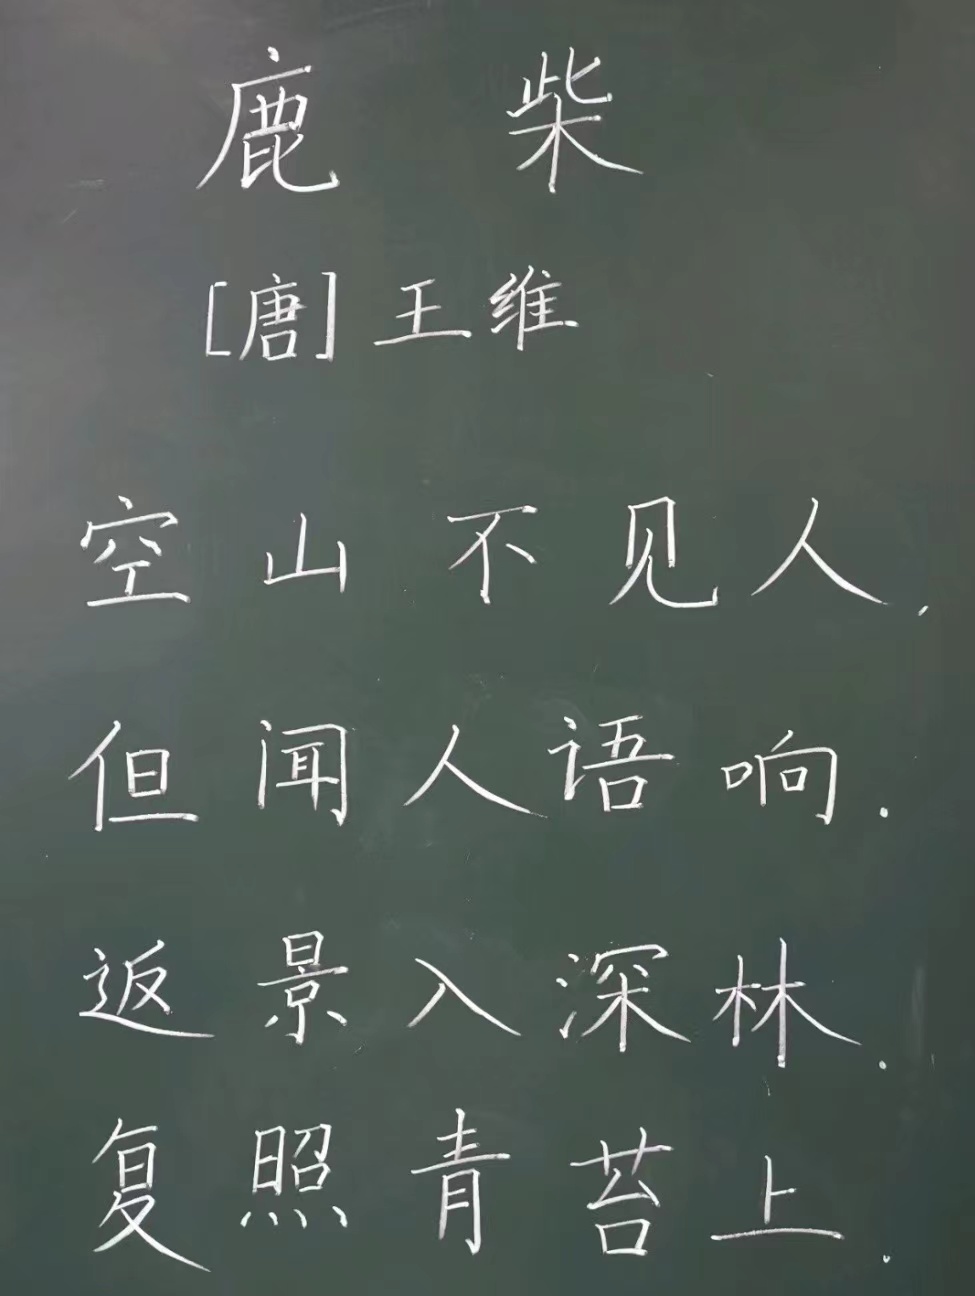 鹿柴
[唐]王维
空山不见人,
但闻人语响.
返景入深林.
复照青苔上.